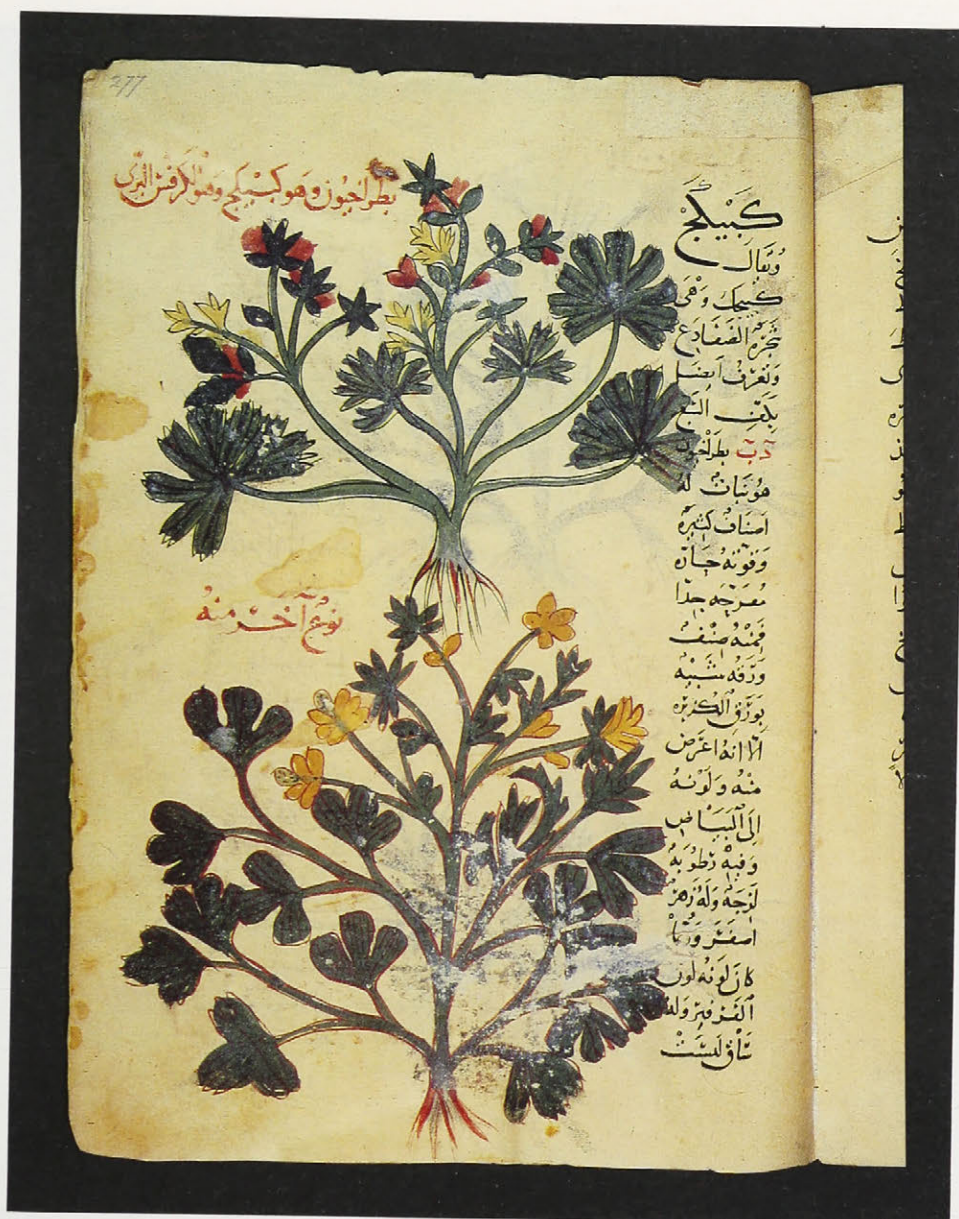 277
بطراخيون وهو كبيكج وهو الكرفس البرى
كبيكج
ويقال
كبيك وهى
شجرة الضفادع
وتعرف ايضا
بكف السبع
دب بطراخيون
هو نبات له
اصناف كثيرة
وقوته حادة
مقرحه جدا
فمنه صنف
ورقه شبيه
بورق الكزبره
الا انه اعرض
منه ولونه
الى البياض
وفيه رطوبه
لزجه وله زهر
اصفر وربما
كان لونه لون
الفرفير وله
ساق ليست
نوع آخر منه